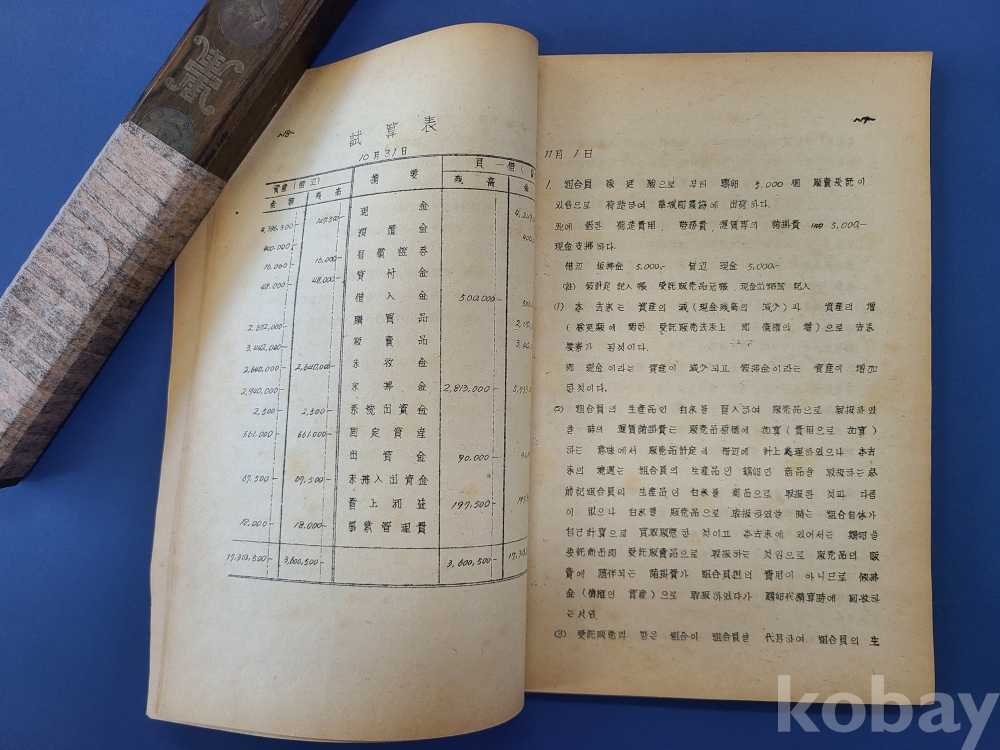 -18-
試算表
10月31日
資産(借辺) 摘要 負一債(
金額 残高 残高 金
4,796,500- 147,500- 現金 4,249
400,000- 預置金 400
16,000- 16,000- 有價證券
48,000- 48,000- 貸付金
借入金 500,000- 500
2,672,000- 購買品 2,172
3,442,000- 販賣品 3,44
2,640,000- 2,640,000- 未收金
2,940,000- 未拂金 2,813,000-
2,500- 2,500- 系統出資金
661,000- 661,000- 固定資産
出資金 90,000-
67,500- 67,500- 未拂入出資金
賣上利益 197,500-
18,000- 18,000- 事業管理費
17,303,500- 3,600,500- 3,600,500- 17,303
11月 1日
1. 組合員 으로 부터 5,000個 販賣委託이
있음으로 하여 에 出荷하다.
費用 勞務費, 運賃等의 諸掛費 5,000,-
現金支拂하다.
借辺 假拂金 5,000,- 貸辺 現金 5,000,-
(註) 假計定 記入帳 受託販売品元帳 現金出納帳 記入
(1) 本 去來는 資産의 減(現金残高의 減少)과 資産의 増
( 에 関한 受託販売去來上 債権의 増)으로 去來
要素가 된것이다.
即 現金이라는 資産이 減少되고 假拂金이라는 資産이 増加
된것이다.
(2) 組合員의 生産品인 白米를 買入하여 販売品으로 取扱하였
을 時의 運賃諸掛費는 販売品原價에 加算(費用으로 加算)
하는 意味에서 販売品計定의 借辺에 計上處理하였으나 本去
來의 境遇는 組合員의 生産品인 商品을 取扱하는
前記組合員의 生産品인 白米를 商品으로 取扱한 것과 다름
이 없으나 白米를 販売品으로 取扱하였을 時는 組合自体가
自己計算으로 買取販売한 것이고 本去來에 있어서는
委託商品即 受託販賣品으로 取扱하는 것임으로 販売品의 販
賣에 随伴되는 諸掛費가 組合負担의 費用이 아니므로 假拂
金(債権인 資産)으로 取扱하였다가 代清算時에 回收하
는것임.
(3) 受託販売라 함은 組合이 組合員을 代理하여 組合員의 生
kobay